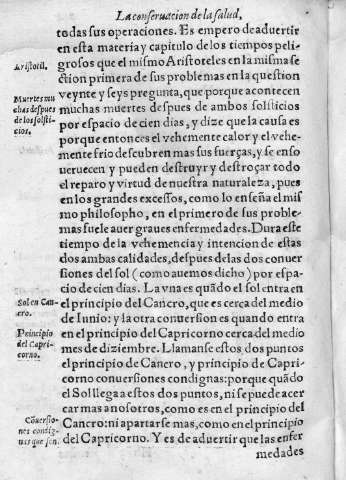 La conseruacion de la salud,
todas sus operaciones. Es empero de aduertir
en esta materia y capitulo de los tiempos peli-
grosos que el mismo Aristoteles en la misma se
Aristotil.
ction primera de sus problemas en la question
veynte y seys pregunta, que porque acontecen
Muertes mu
chas despues
de los solsti-
cios.
muchas muertes despues de ambos solsticios
por espacio de cien dias, y dize que la causa es
porque entonces el vehemente calor y el vehe-
mente frio descubren mas sus fuerças, y se enso
ueruecen y pueden destruyr y destroçar todo
el reparo y virtud de nuestra naturaleza, pues
en los grandes excessos, como lo enseña el mis
mo philosopho, en el primero de sus proble-
mas suele auer graues enfermedades. Dura este
tiempo de la vehemencia y intencion de estas
dos ambas calidades, despues de las dos conuer
siones del sol (como auemos dicho) por espa-
cio de cien dias. La vna es quãdo el sol entra en
Sol en Can-
cro.
el principio del Cancro, que es cerca del medio
de Iunio: y la otra conuersion es quando entra
Principio
del Capri-
corno.
en el principio del Capricorno cerca del medio
mes de diziembre. Llamanse estos dos puntos
el principio de Cancro, y principio de Capri-
corno conuersiones condignas: porque quãdo
el Sol llega a estos dos puntos, ni se puede acer
car mas a nosotros, como es en el principio del
Cõuersio-
nes condig-
nas que son.
Cancro: ni apartarse mas, como en el principio
del Capricorno. Y es de aduertir que las enfer
medades